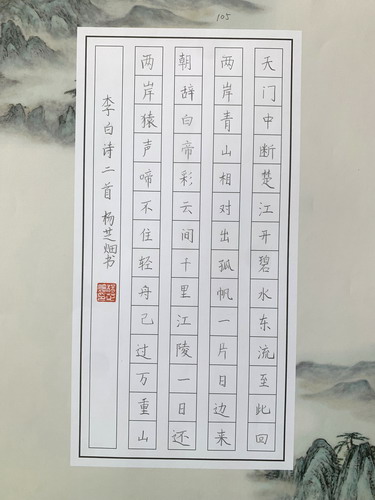 105
天门中断楚江开碧水东流至此回
两岸青山相对出孤帆一片日边来
朝辞白帝彩云间千里江陵一日还
两岸猿声啼不住轻舟已过万重山
李白诗二首 杨芝烟书